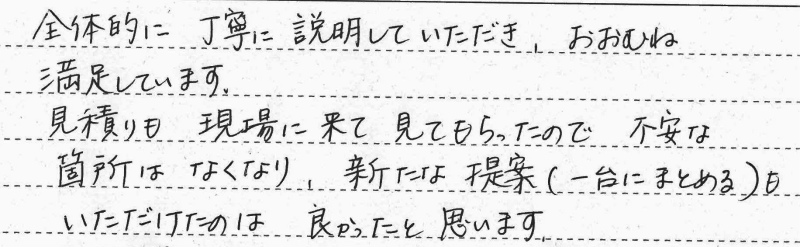 全体的に 丁寧に 説明して いただき、おおむね
満足しています。
見積りも 現場に 来て 見てもらったので 不安な
箇所は なくなり、新たな 提案(一台に まとめる)も
いただけたのは 良かったと 思います。